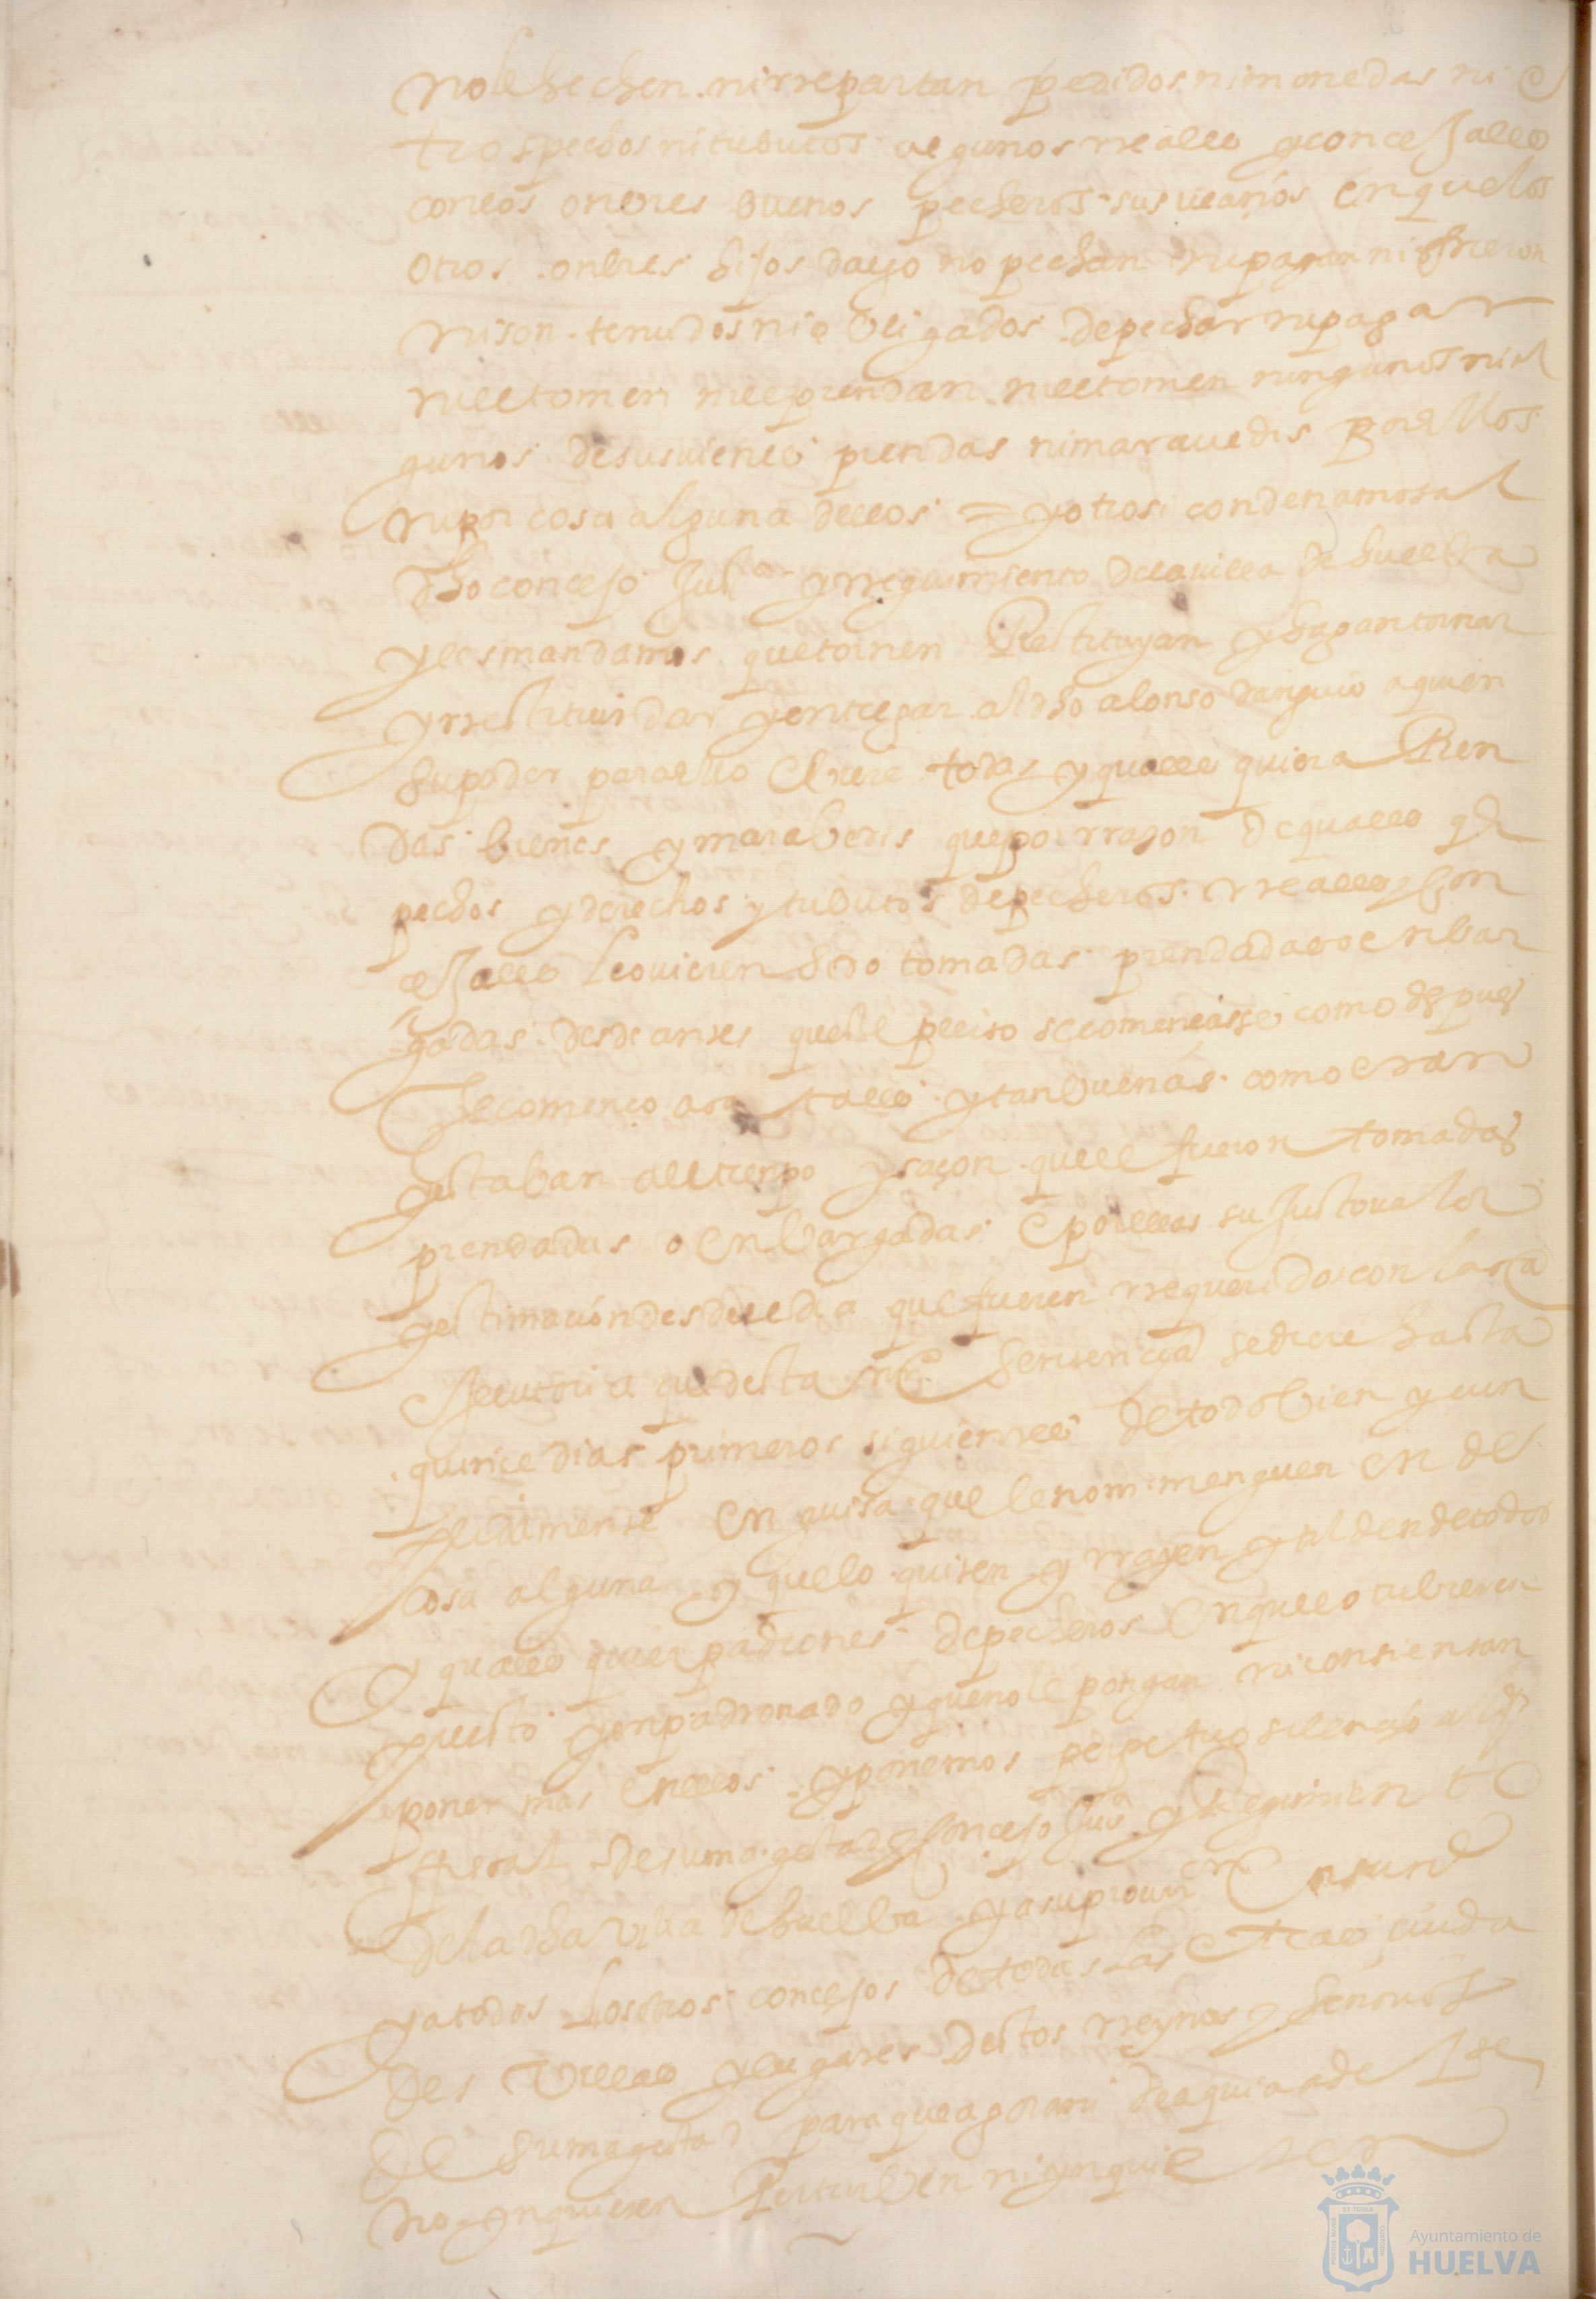 nole hechen ni rrepartan pedidos ni monedas ni o
tros pechos ni tributos algunos rreales y concejales
con los onbres buenos pecheros sus veçinos en que los
otros onbres hijos dalgo no pechan ni pagan ni fueron
ni son tenudos ni obligados de pechar ni pagar
ni le tomen ni le prendan ni le tomen ningunos ni al
gunos de sus vienes prendas ni maravedis por ellos
ni por cosa alguna dellos = y otrosi condenamos al
dho concejo Justª y rregimiento de la villa de huelba
y les mandamos que tornen Restituyan y hagan tornar
y rrestituir dar y entregar al dho alonso danguio a quien
su poder para ello obiere todas y quales quiera Pren
das bienes y maraberis que por rraçon de quales qr
pechos y derechos y tributos de pecheros rreales y con
cejales le ovieren sido tomadas prendadas o enbar
gadas desde antes queste pleito se començasse como despues
se començo a tales y tan buenas como eran
y estaban al tienpo y saçon que le fueron tomadas
prendadas o enbargadas e por ellas su justo valor
y estimaçion desde el dia que fueren rrequeridos con la ca
executoria que desta nrª sentençia se diere hasta
quinçe dias primeros siguientes de todo bien y cun
plidamente en guisa que le non mengüen en de
cosa alguna y que lo quiten y rrayen y tilden de todos
y quales quier padrones de pecheros en que lo tubieren
puesto y enpadronado y que no le pongan ni consientan
poner mas en ellos y ponemos perpetuo silençio al dho
fiscal de su magestad y conçejo Justª y Regimiento
de la dha villa de huelba y a su procurador en su nre
y a todos los otros conçejos de todas las otras çiuda
des villas y lugares destos rreynos y señorios
de su magestad para que agora ni de aqui adelante
no ynquieten Perturben ni ynquiete
Ayuntamiento de
HUELVA